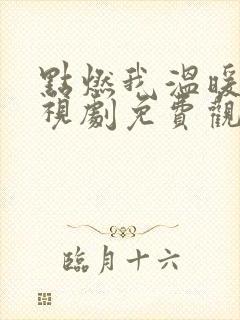 點燃我,溫暖
視劇免費觀
臨月十六